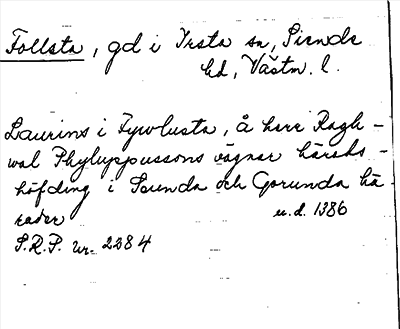 Follsta, gd i Irsta sn, Siende
hd, Västm. l.
Laurins i Fyrolusta, å herr Ragh-
wal Phyluppussons vägnar härads-
höfding i Seunda och Gorunda hä-
rader u.d. 1386
S.R.P. nr. 2284